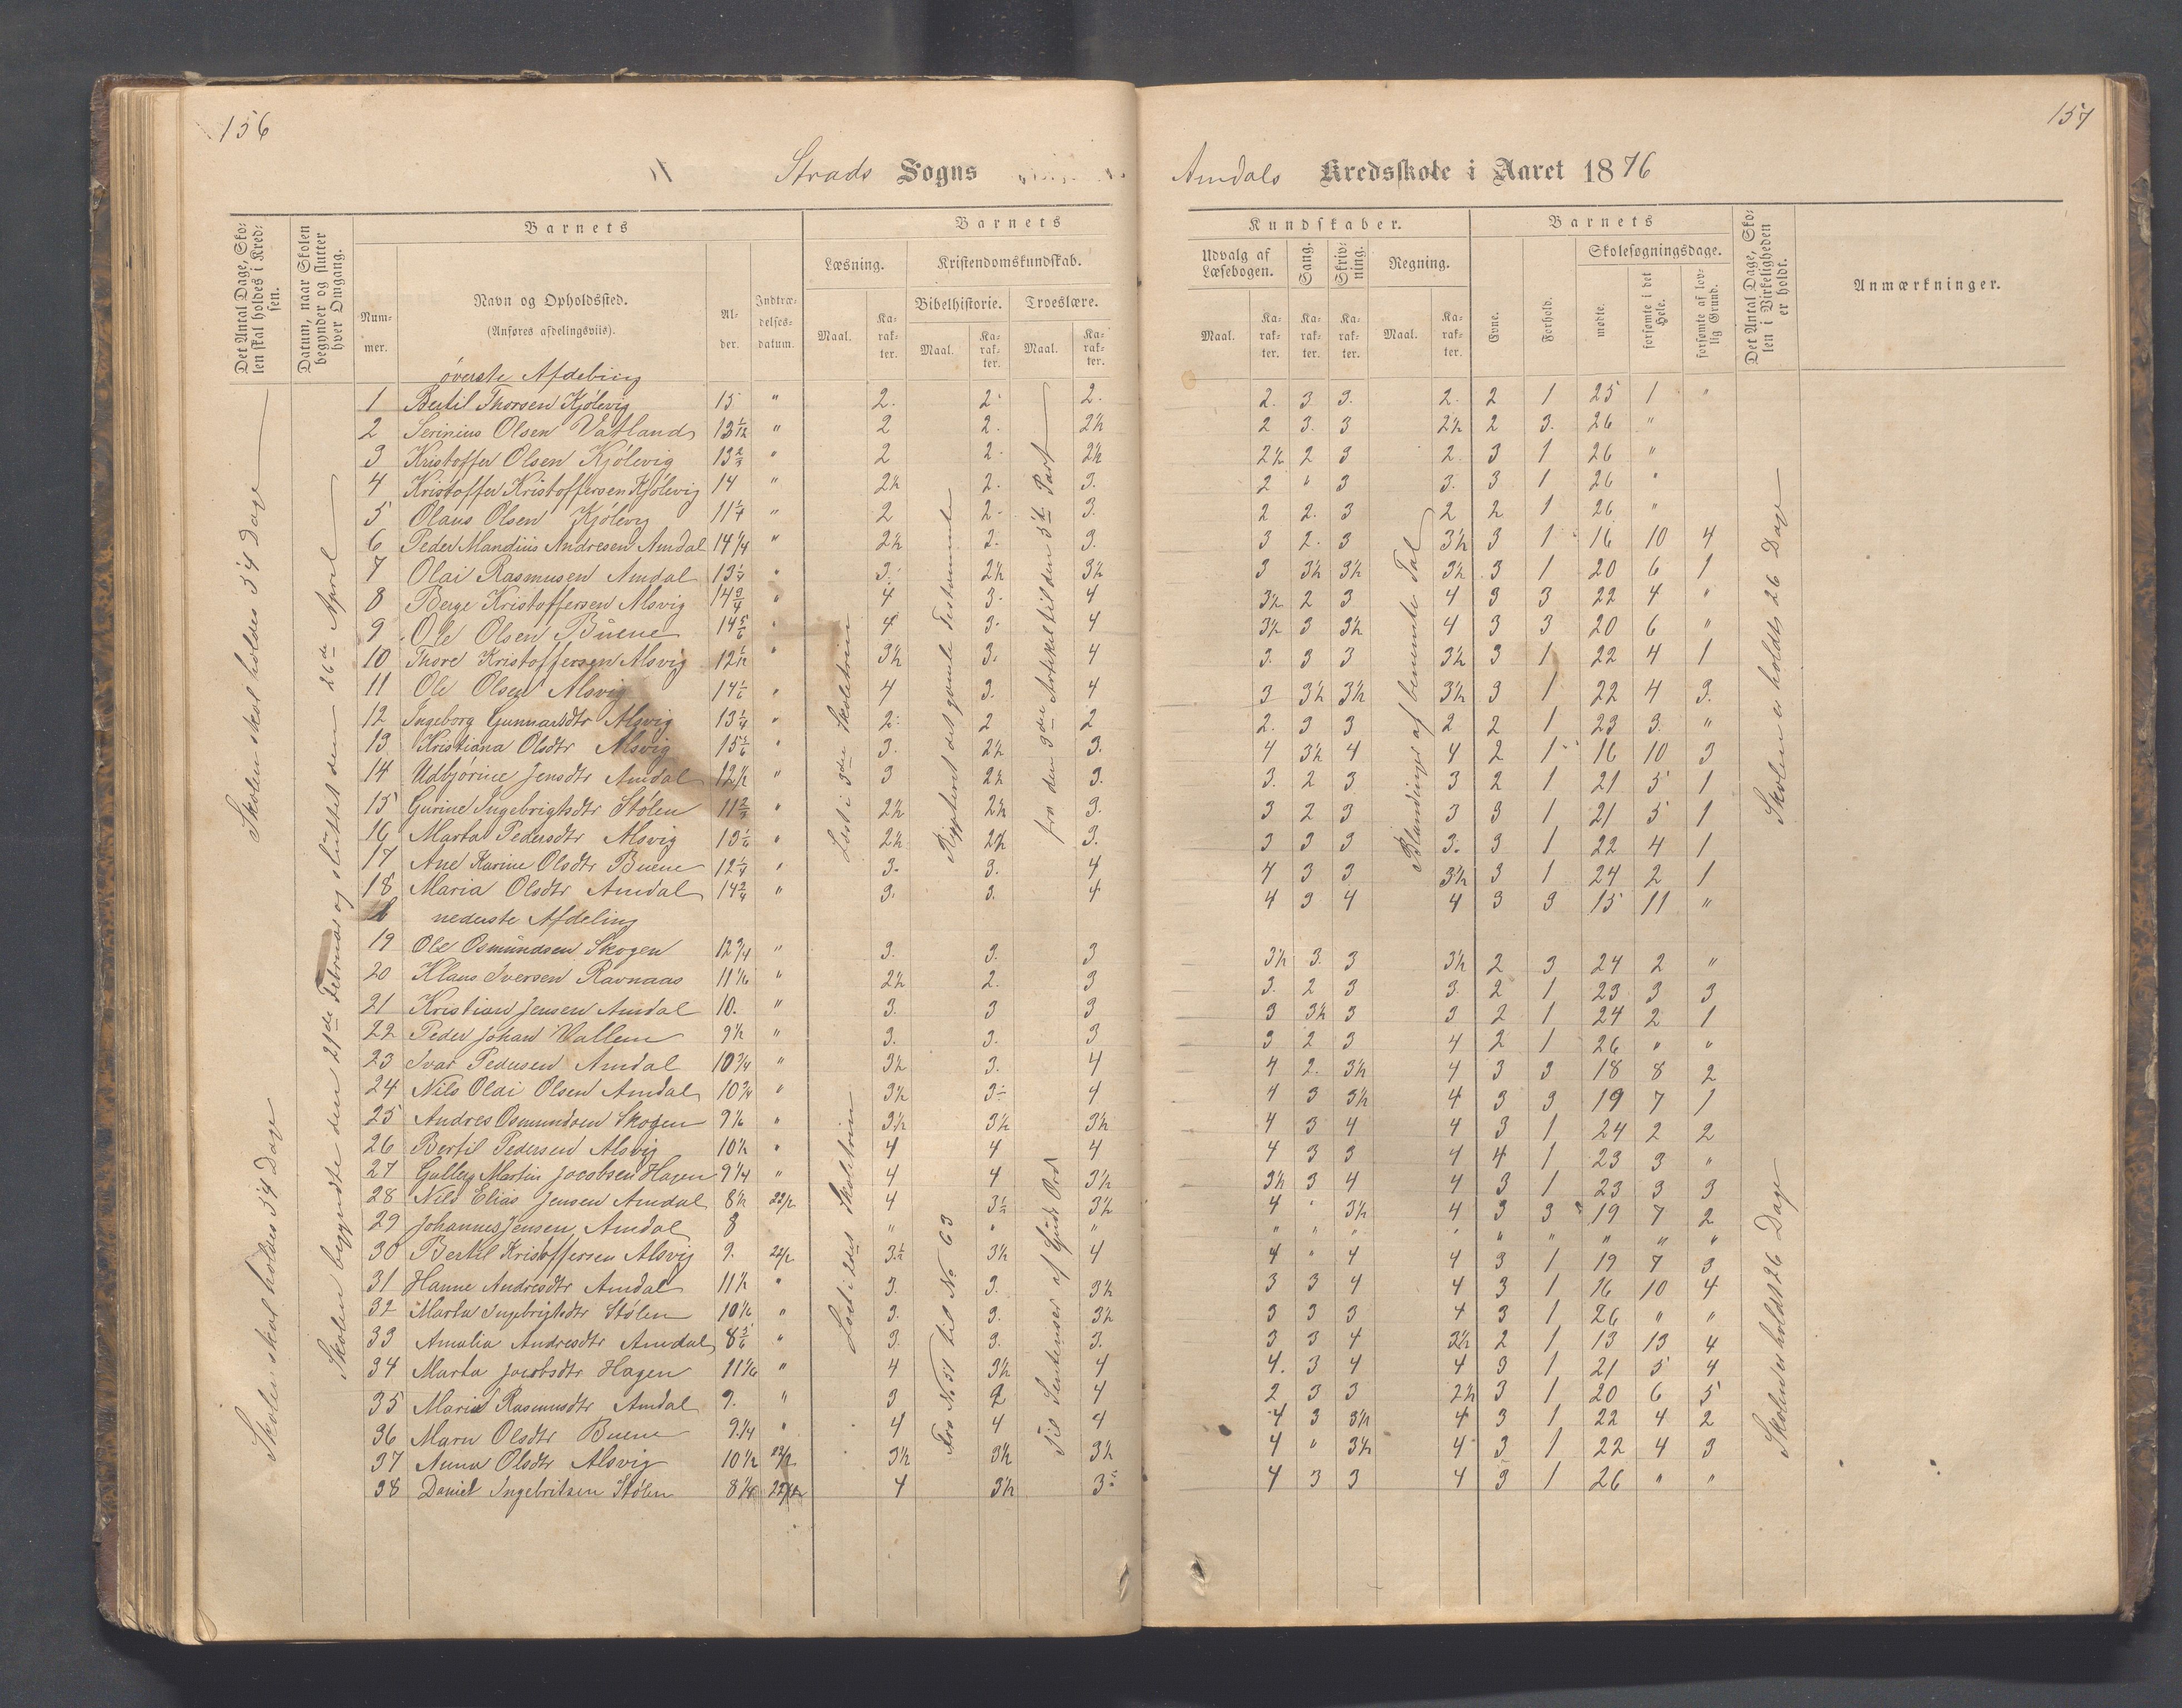 156
157
Strads Sogns
Amdals Kredsskole i Aaret 1876
Det Antal Dage, Skolen skal holdes i Kredsen.
Datum, naar Skolen begynder og slutter hver Omgang.
Barnets
Nummer.
Navn og Opholdssted.
(Anføres afdelingsviis).
Alder.
Indtrædelsesdatum.
Barnets
Kundskaber.
Læsning.
Kristendomskundskab.
Bibelhistorie.
Troeslære.
Udvalg af Læsebogen.
Sang.
Skrivning.
Regning.
Maal.
Karakter.
Barnets
Evne.
Forhold.
Skolesøgningsdage.
mødte.
forsømte i det Hele.
forsømte af lovlig Grund.
Det Antal Dage, Skolen i Virkeligheden er holdt.
Anmærkninger.
Skolen skal holdes 54 Dage
Skolen begyndte den 21de Februar og sluttet den 26de April
øverste Afdeling
1 Bertil Thorsen Kjølevig 15 " 2. 2. 2. 2. 3. 3. 2. 2 1 25 1 "
2 Serinius Olsen Vatland 13 1/12 " 2 2. 2½ 2 3. 3 2½ 2 3. 26 "
3 Kristoffer Olsen Kjølevig 13 2/3 " 2 2. 2½ 2½ 2 3 2. 3 1 26 "
4 Kristoffer Kristoffersen Kjølevig 14 " 2½ 2. 3. 2 " 3 3. 3 1 26 "
5 Olaus Olsen Kjølevig 11 1/4 " 2 2. 3. 2 2. 3 2 2 1 26 "
6 Peder Mandius Andresen Amdal 14 1/4 " 2½ 2. 3. 3 2. 3 3½ 3 1 16 10 4
7 Olai Rasmusen Amdal 13 1/4 " 3. 2½ 3½ 3 3½ 3½ 3½ 3 1 20 6 1
8 Berge Kristoffersen Alsvig 14 3/4 " 4 3. 4 3½ 2 3 4 3 3 22 4 "
9 Ole Olsen Buene 14 5/6 " 4 3. 4 3½ 3 3½ 4 3 3 20 6 "
10 Thore Kristoffersen Alsvig 12 1/12 " 3½ 3. 4 3. 3 3 3½ 3 1 22 4 1
11 Ole Olsen Alsvig 14 1/6 " 4 3. 4 3 3½ 3½ 3½ 3 1 22 4 3.
12 Ingeborg Gunnarsdtr Alsvig 13 1/4 " 2. 2 2 2. 3 3 2 2 1 23 3. "
13 Kristiana Olsdtr Alsvig 15 5/6 " 3. 2½ 3. 4 3½ 4 4 2 1 16 10 3
14 Udbjørine Jensdtr Amdal 12½ " 3 2½ 3. 3. 2 3 3 2 1 21 5 1
15 Gurine Ingebrigtsdtr Stølen 11 2/3 " 2½ 2½ 3. 3 2 3 3 3 1 21 5 1
16 Marta Pedersdtr Alsvig 13 1/6 " 2½ 2½ 3. 3 3 3 3. 3 1 22 4 1
17 Ane Karine Olsdtr Buene 12 1/4 " 3. 3. 4 4 3 3 3½ 3 1 24 2 1
18 Maria Olsdtr Amdal 14 2/4 " 3. 3. 4 4 3 4 4 3 3 15 11 "
Læst i 3die Skoletrin
Repeteret det gamle Testamente
fra den 3die Artikel til den 5te Part
Blandinger af benævnte Tal
Skolen er holdt 26 Dage
nederste Afdeling
Skolen skal holdes 54 Dage
19 Ole Osmundsen Skogen 12 3/4 " 3. 3. 3 3½ 3. 3 3½ 2 3 24 2 "
20 Klaus Iversen Ravnaas 11 1/6 " 2½ 2. 3 3. 2 3 3. 2 1 23 3 3
21 Kristian Jensen Amdal 10. " 3. 3 3 3 3½ 3 3 2 1 24 2 1
22 Peder Johan Vallem 9½ " 3. 3. 3 3 2 3 4 2 1 26 " "
23 Ivar Pedersen Amdal 10 3/4 " 3½ 3. 4 4 2. 3½ 4 3 3 18 8 2
24 Nils Olai Olsen Amdal 10 3/4 " 3½ 3 4 4 3 3½ 4 3 3 19 7 1
25 Andres Osmundsen Skogen 9 1/6 " 3½ 3½ 3½ 4 3 4 4 3 1 24 2 2
26 Bertil Pedersen Alsvig 10½ " 4 4 4 4 3 3 4 4 1 23 3 "
27 Gulleg Martin Jacobsen Hagen 9 1/4 " 4 4 3½ 3½ 3 4 4 3 1 23 3 3
28 Nils Elias Jensen Amdal 8½ 22/2 4 3½ 3½ 4 " 3½ 4 3 3 19 7 2
29 Johannes Jensen Amdal 8 " " " " " " " " " " " "
30 Bertil Kristoffersen Alsvig 9. 22/2 3½ 3½ 4 4 " 4 4 3 1 19 7 3
31 Hanne Andresdtr Amdal 11½ " 3. 3. 3½ 3 3 4 4 3 1 16 10 4
32 Marta Ingebrigtsdtr Stølen 10 1/6 " 3. 3. 3½ 3 3 3 4 3 1 26 " "
33 Amalia Andresdtr Amdal 8 5/6 " 3. 3. 3. 3 3 4 3½ 2 1 13 13 4
34 Marta Jacobsdtr Hagen 11 1/6 " 4 3½ 4 4. 3 4 4 3 1 21 5 4
35 Maria Rasmusdtr Amdal 9. " 3 2 4 2 3 3 2½ 3 1 20 6 5
36 Maru Olsdtr Buene 9 1/4 " 4 4 4 4 3 3½ 4 3 1 22 4 2
37 Anna Olsdtr Alsvig 10½ 23/2 3½ 3½ 3½ 4 " 3½ 4 3 1 22 4 3
38 Daniel Ingebritsen Stølen 8 1/4 4 3½ 3 4 3 3 4 3 1 26 " "
Læst i 2det Skoletrin
Fra No 51 til No 63
til Sentenser af Guds Ord
Skolen er holdt 26 Dage